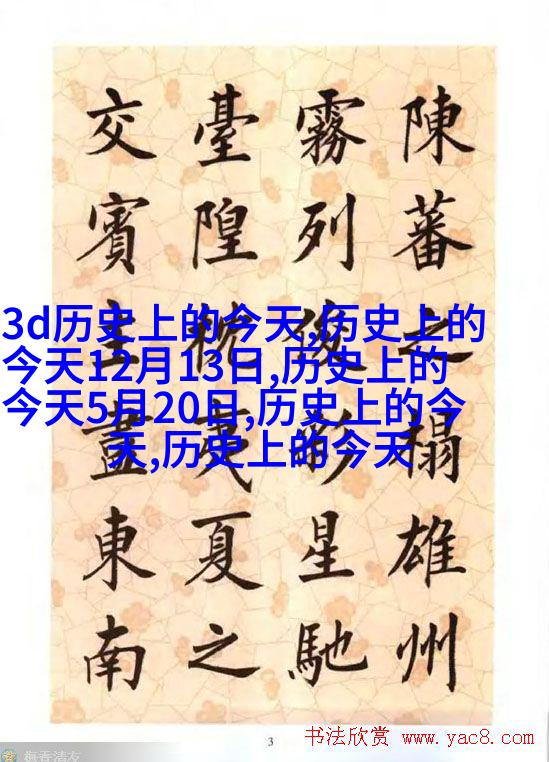 陳蕃之榻雄州
霧列俊彩星馳
臺隍枕夷夏之
交賓主盡東南
3d历史上的今天,历史上的
今天12月13日,历史上的
今天5月20日,历史上的今
天,历史上的今天
3
书法欣赏 www.yac8.com